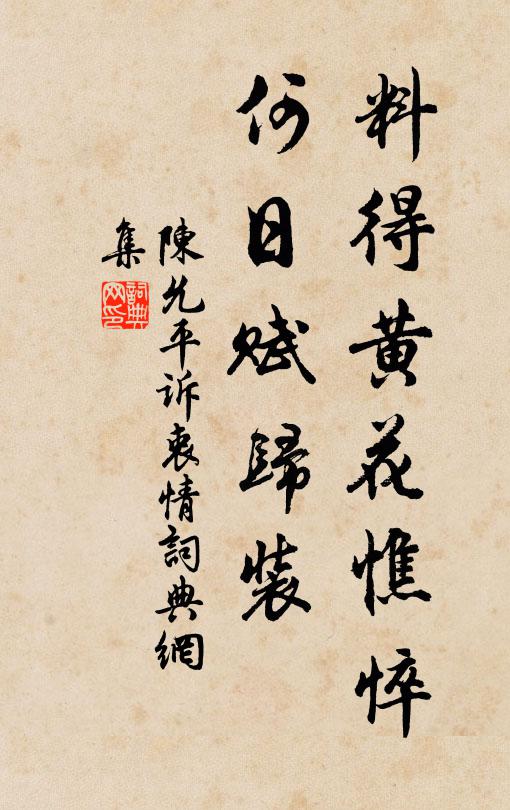 料得黄花憔悴
何日賦歸裝
陳允平訴衷情詞典網
集
詞典網印